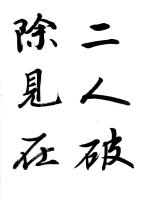 二人破
除見在